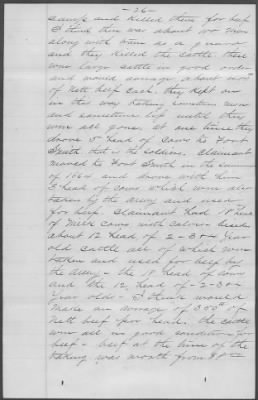 -26-
camp and killed them for beef
I think there was about 100 men
along with them as a guard
and they killed the cattle. these
were large cattle in good order
and would average about
of nett beef each. they kept on
in this way taking sometimes more
and sometimes less until they
were all gone. at one time they
drove 5 head of cows to Fort
Smith that is the soldiers. Claimant
moved to Fort Smith in the
of 1864 and drove with him
5 head of cows which were also
taken by the army and used
for beef. Claimant had 18 head
of milk cows with calves besides
about 12 head of -2-3 or 4 year
old cattle all of which were
taken and used for beef by
the army - the 18 head of cows
and the 12 head of -2-3 or 4
year olds - I think would
make an average of 350 lbs of
nett beef per head. the cattle
were all in good condition for
beef - beef at the time of the
taking was worth from